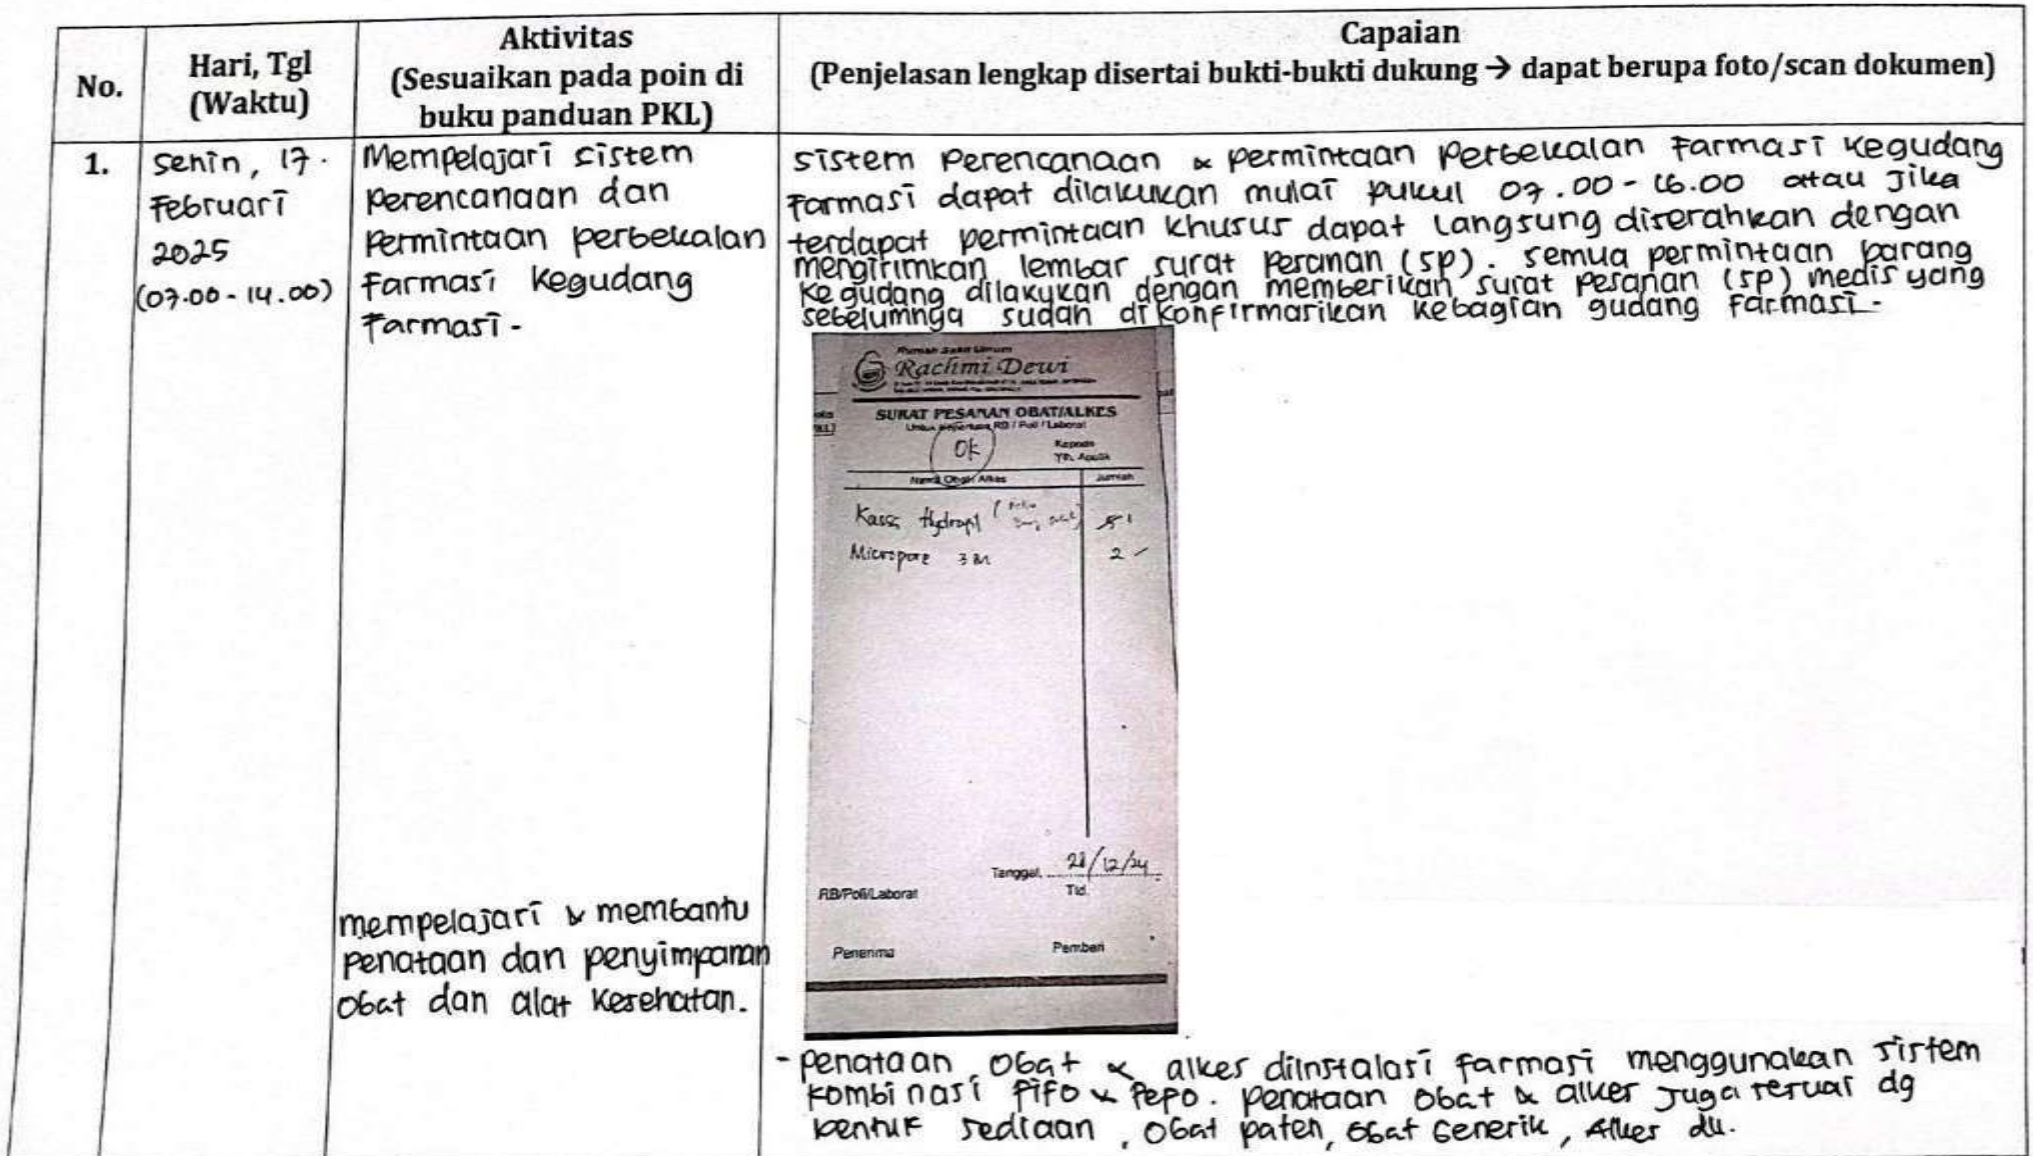 No.
Hari, Tgl
(Waktu)
Aktivitas
(Sesuaikan pada poin di
buku panduan PKL)
Capaian
(Penjelasan lengkap disertai bukti-bukti dukung → dapat berupa foto/scan dokumen)
1.
Senin, 17
Februari
2025
(07.00 - 14.00)
Mempelajari sistem
perencanaan dan
Permintaan perbekalan
Farmasi Kegudang
Farmasi.
sistem Perencanaan & permintaan Perbekalan Farmasi Kegudang
Farmasi dapat dilakukan mulai pukul 07.00 - 16.00 atau Jika
terdapat permintaan khusus dapat Langsung diserahkan dengan
mengirimkan lembar surat Pesanan (SP). semua permintaan barang
Kegudang dilakukan dengan memberikan surat Pesanan (SP) medis yang
sebelumnya sudah dikonfirmasikan kebagian gudang farmasi.
Rumah Sakit Umum
Rachmi Dewi
SURAT PESANAN OBAT/ALKES
Untuk RB / Poli / Laborat
OK
Kepada
Yth. Apotik
Nama Obat / Alkes
Jumlah
Kassa Hydropil
5
Micropore 3 M
2
Tanggal, 28/12/24
RB/Poli/Laborat
Ttd.
Penerima
Pemberi
mempelajari & membantu
penataan dan penyimpanan
obat dan alat Kesehatan.
- penataan obat & alkes diinstalasi farmasi menggunakan sistem
kombinasi fifo & fefo. penataan obat & alkes Juga sesuai dg
bentuk sediaan, obat paten, obat Generik, Alkes dll.